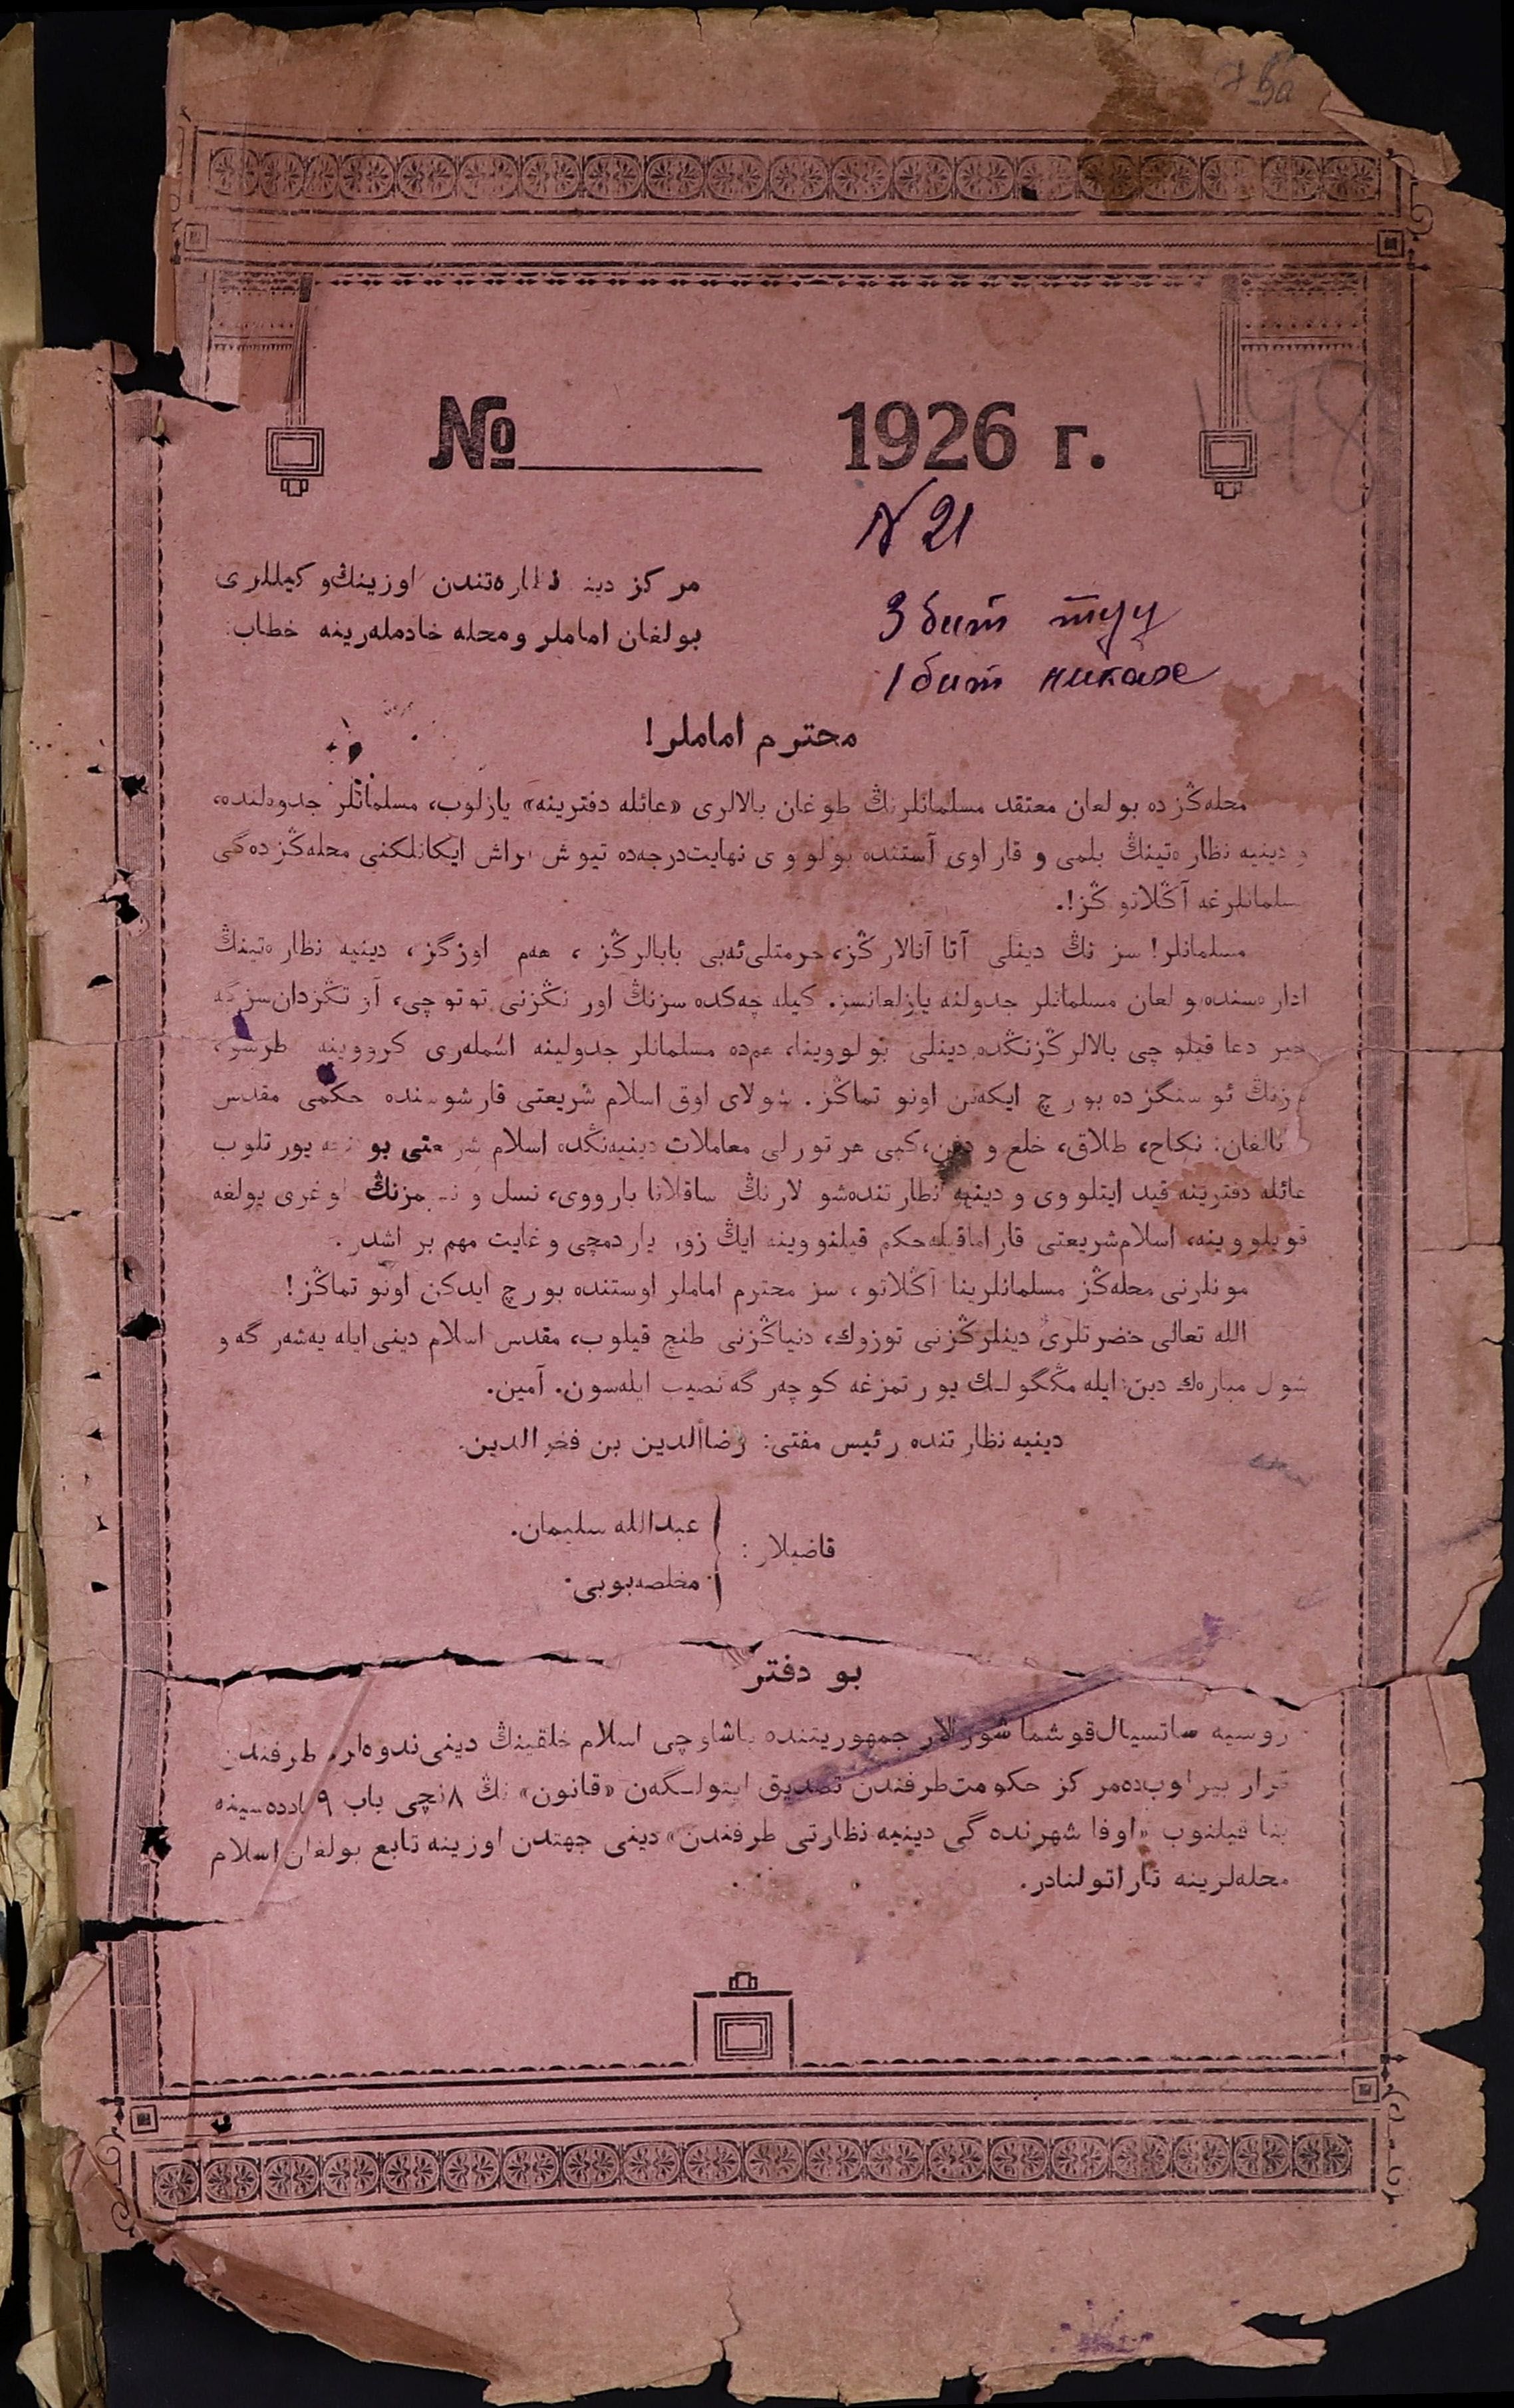 № 1926 г.
N 21
مركز دينيه نظارەتندن اوزينڭ وكيللرى
بولغان اماملر ومحله خادملەرينه خطاب.
3 бит туу
1 бит никах
محترم اماملر!
محلەڭزده بولغان معتقد مسلمانلرنڭ طوغان بالالرى «عائله دفترينه» يازلوب، مسلمانلر جدولنده،
دينيه نظارەتينڭ بلمى و قاراوى آستنده بولووى نهايت درجەده تيوش اش ايكانلكنى محلەڭزدەگى
مسلمانلرغه آڭلاتوڭز!.
مسلمانلر! سزنڭ دينلى آتا آنالارڭز، حرمتلى ئەبى بابالرڭز، هەم اوزگز، دينيه نظارەتينڭ
ادارەسنده بولغان مسلمانلر جدولنه يازلغانسز. كيله چەكده سزنڭ اورنڭزنى توتوچى، آرتڭزدان سزگه
خير دعا قيلوچى بالالرڭزنڭده دينلى بولووينا، هم ده مسلمانلر جدولينه اسملەرى كرووينه طرشو،
سزنڭ ئوستڭزده بورچ ايكەنن اونوتماڭز. شولاى اوق اسلام شريعتى قارشوسنده حكمى مقدس
نالغان: نكاح، طلاق، خلع و دفن، كبى هر تورلى معاملات دينيەنڭده اسلام شريعتى بوينچه يورتلوب
عائله دفترينه قيد ايتلووى و دينيه نظارتنده شولارنڭ ساقلانا بارووى، نسل و نسبمزنڭ طوغرى يولغه
قويلووينه، اسلام شريعتى قاراماقيله حكم قيلنووينه ايڭ زور ياردمچى و غايت مهم بر اشدر.
مونلرنى محلەڭز مسلمانلرينا آڭلاتو، سز محترم اماملر اوستنده بورچ ايدكن اونوتماڭز!
الله تعالى حضرتلرى دينلرڭزنى توزوك، دنياڭزنى طنچ قيلوب، مقدس اسلام دينى ايله يەشەرگه و
شول مبارەك دين ايله مڭگولك يورتمزغه كوچەرگه نصيب ايلەسون. آمين.
دينيه نظارتنده رئيس مفتى: رضاالدين بن فخرالدين.
قاضيلار:
عبدالله سليمان.
مخلصه بوبى.
بو دفتر
روسيه ساتسيال قوشما شورالار جمهوريتنده ياشاوچى اسلام خلقينڭ دينى ندوەلرى طرفندن
قرار بيرلوب ده مركز حكومت طرفندن تصديق ايتولگەن «قانون» نڭ ٨ نچى باب ٩ ماددەسينه
بنا قيلنوب «اوفا شهرندەگى دينيه نظارتى طرفندن» دينى جهتدن اوزينه تابع بولغان اسلام
محلەلرينه تاراتولنادر.